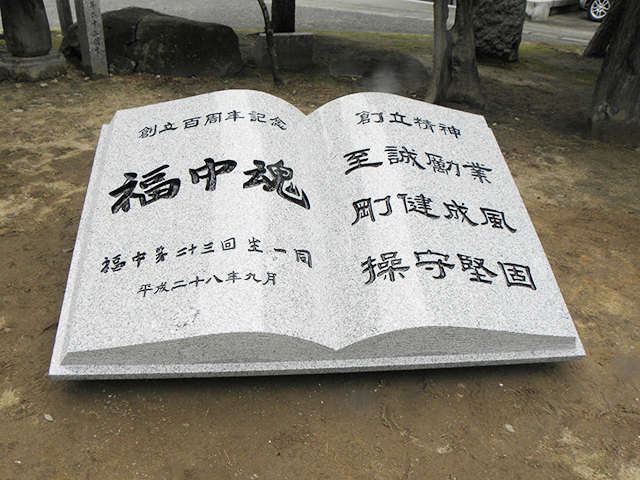 創立百周年記念
福中魂
福中第二十三回生一同
平成二十八年九月
創立精神
至誠励業
剛健成風
操守堅固